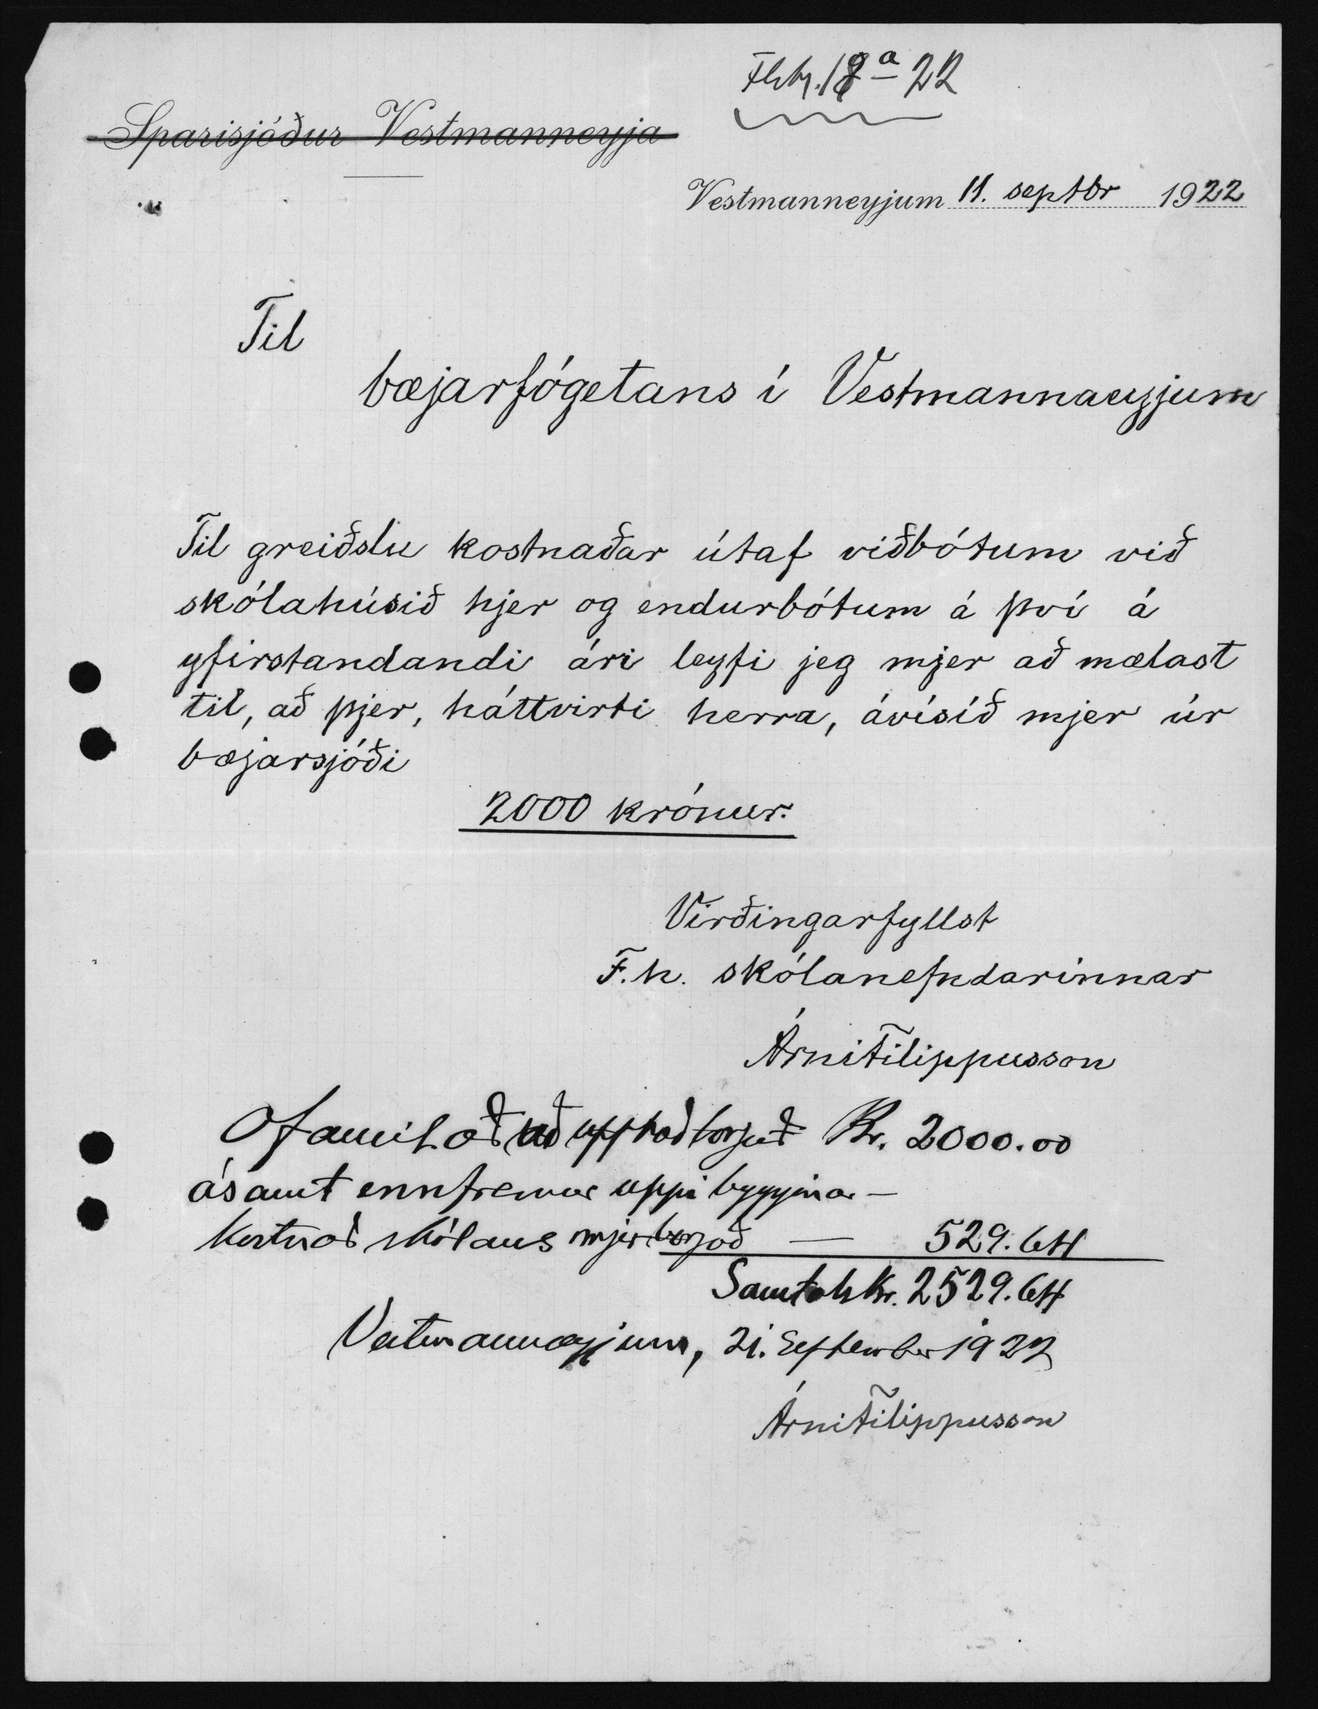 Fskj. 18a 22
Sparisjóður Vestmanneyja
Vestmanneyjum 11. septbr 1922
Til
bæjarfógetans í Vestmannaeyjum
Til greiðslu kostnaðar útaf viðbótum við
skólahúsið hjer og endurbótum á því á
yfirstandandi ári leyfi jeg mjer að mælast
til, að þjer, háttvirti herra, ávísið mjer úr
bæjarsjóði
2000 krónur.
Virðingarfyllst
F.h. skólanefndarinnar
Árni Filippusson
Ofanrituð upphæð borguð Kr. 2000.00
ásamt ennfremur uppí byggingar-
kostnað skólans mjer borgað — 529.64
Samtals Kr. 2529.64
Vestmannaeyjum, 21. September 1922
Árni Filippusson